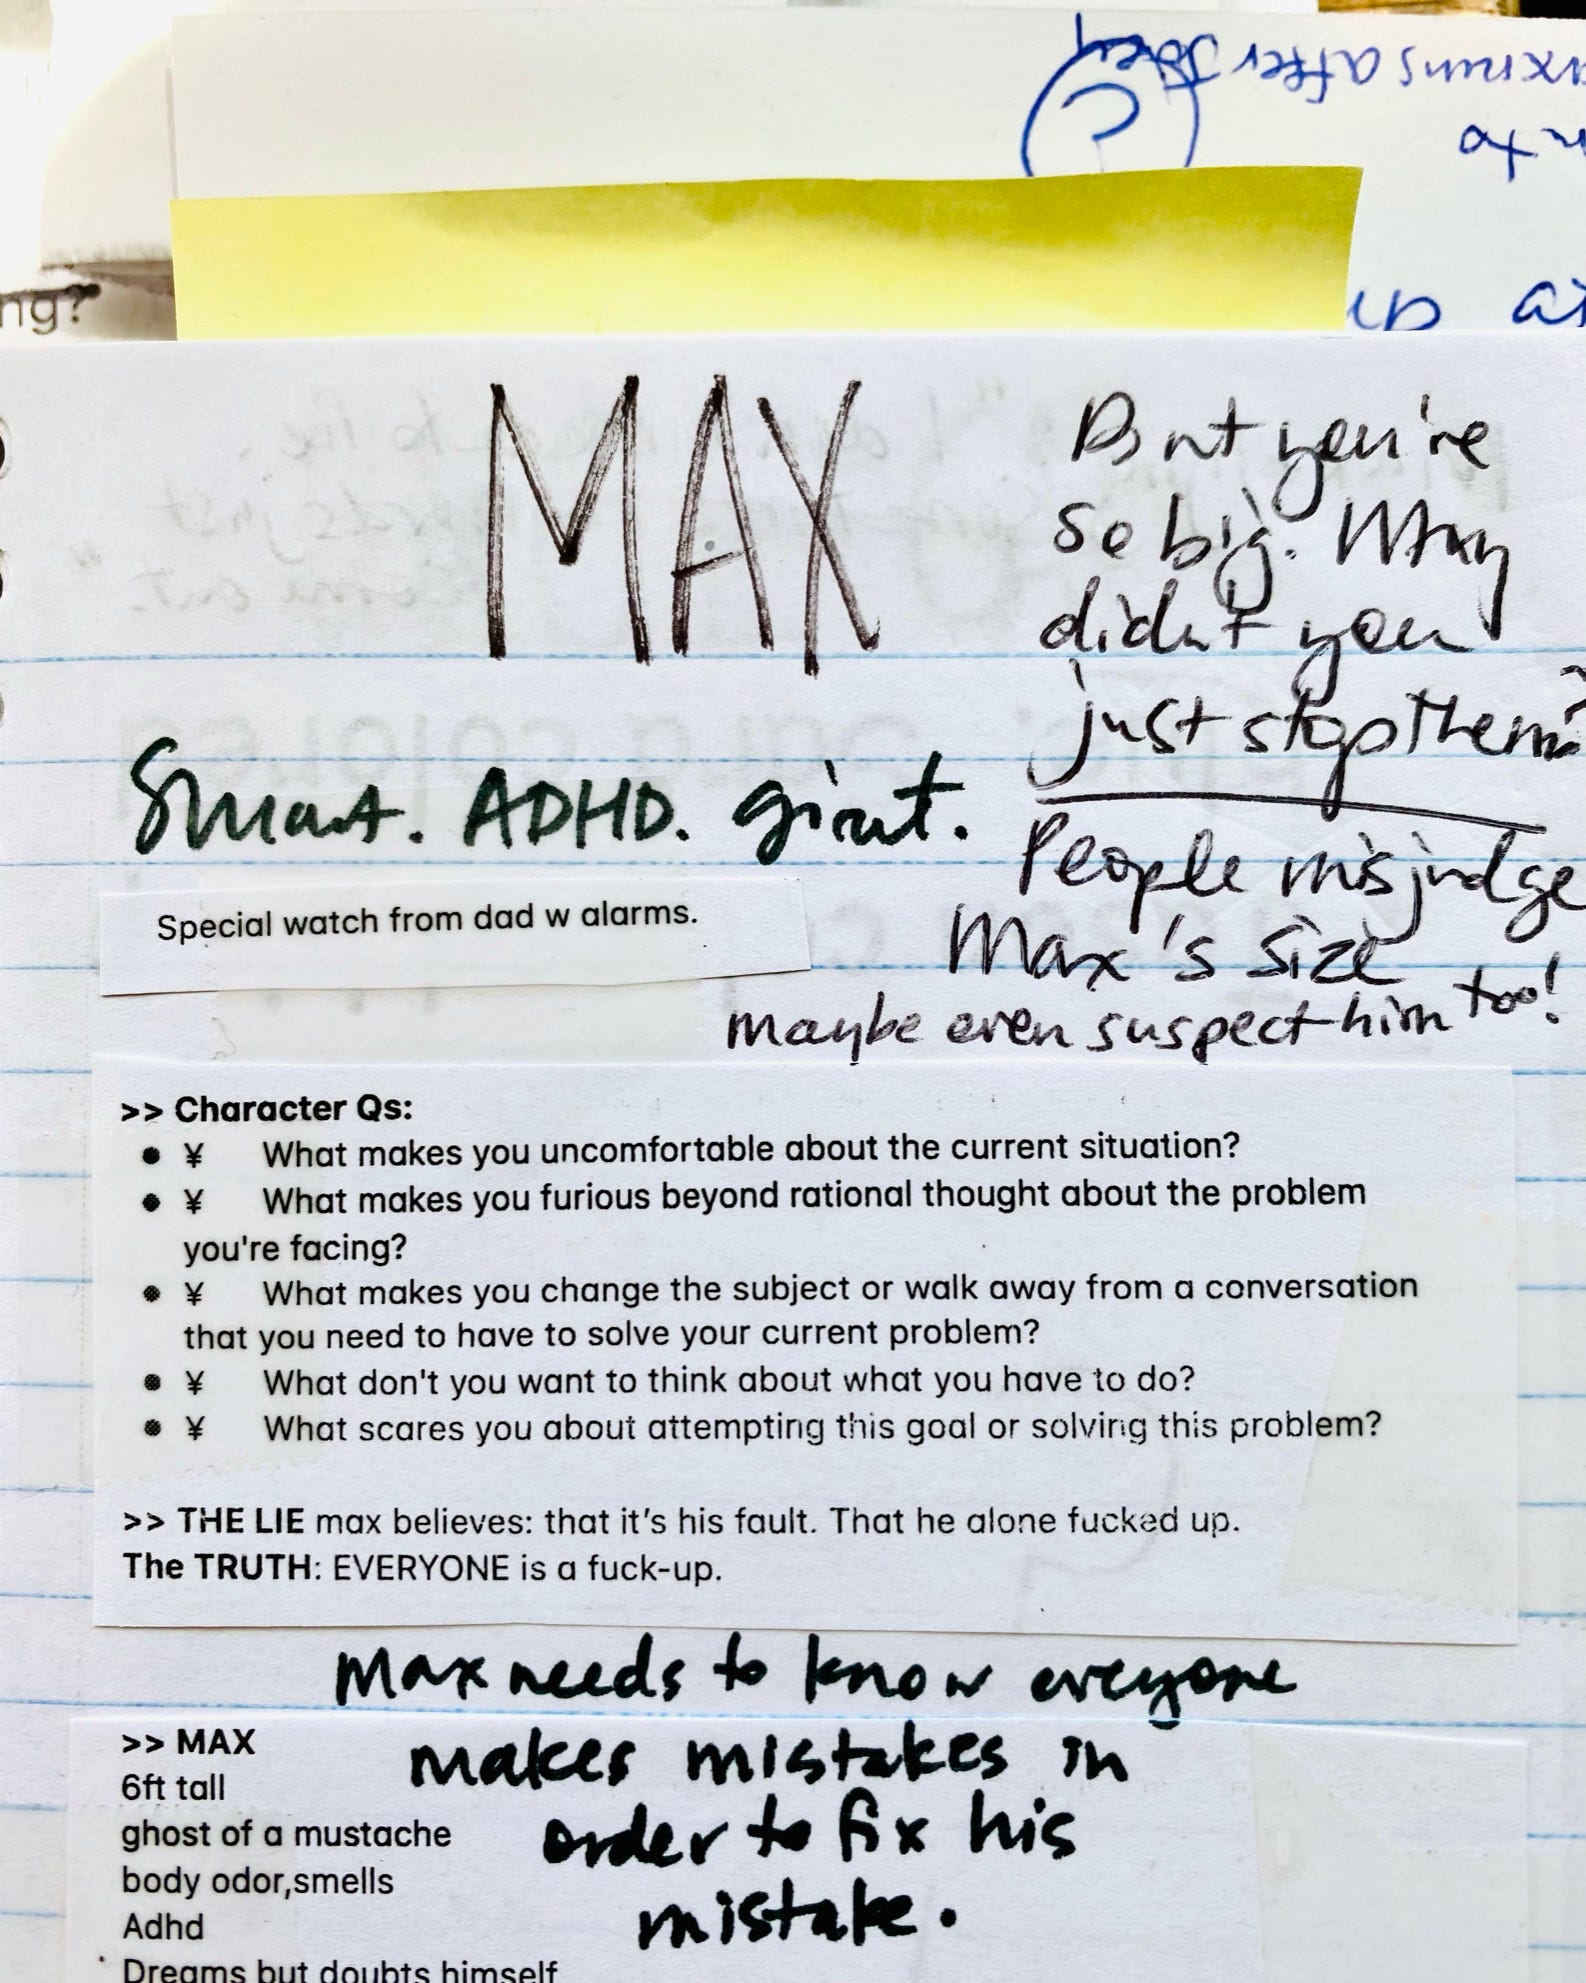 ng?
MAX
But you're
so big. Why
didn't you
just stop them?
Smart. ADHD. giant.
People misjudge
Max's size
maybe even suspect him too!
Special watch from dad w alarms.
>> Character Qs:
• ¥ What makes you uncomfortable about the current situation?
• ¥ What makes you furious beyond rational thought about the problem
you're facing?
• ¥ What makes you change the subject or walk away from a conversation
that you need to have to solve your current problem?
• ¥ What don't you want to think about what you have to do?
• ¥ What scares you about attempting this goal or solving this problem?
>> THE LIE max believes: that it's his fault. That he alone fucked up.
The TRUTH: EVERYONE is a fuck-up.
Max needs to know everyone
makes mistakes in
order to fix his
mistake.
>> MAX
6ft tall
ghost of a mustache
body odor,smells
Adhd
Dreams but doubts himself